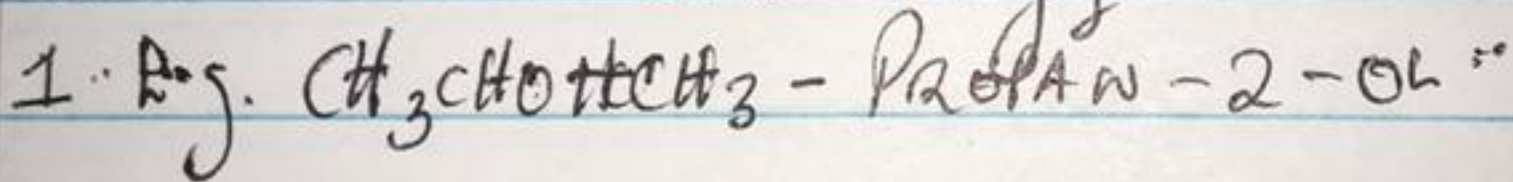 1. E.g. CH3CHOHCH3 - PROPAN - 2 - OL